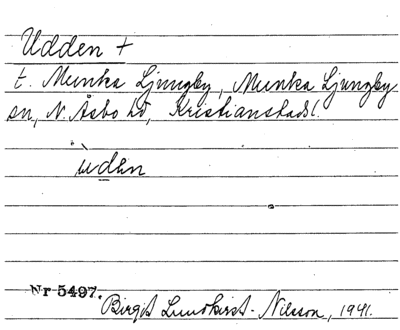 Udden +
t. Munka Ljungby, Munka Ljungby
sn, N. Åsbo hd, Kristianstads l.
ùden
Nr 5497.
Birgit Lundkvist-Nilsson, 1941.